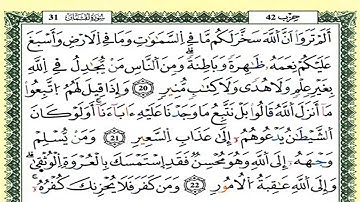 31 سُورَةُ لُقْمَانَ حِزْب 42
أَلَمْ تَرَوْا أَنَّ اَللَّهَ سَخَّرَ لَكُم مَّا فِے اِلسَّمَٰوَٰتِ وَمَا فِے اِلَارْضِ وَأَسْبَغَ
عَلَيْكُمْ نِعَمَهُۥ ظَٰهِرَةً وَبَاطِنَةً وَمِنَ اَلنَّاسِ مَنْ يُّجَٰدِلُ فِے اِللَّهِ
بِغَيْرِ عِلْمٍ وَلَا هُدًى وَلَا كِتَٰبٍ مُّنِيرٍ 20 وَإِذَا قِيلَ لَهُمُ اُتَّبِعُوا
مَا أَنزَلَ اَللَّهُ قَالُوا بَلْ نَتَّبِعُ مَا وَجَدْنَا عَلَيْهِ ءَابَاءَنَا أَوَلَوْ كَانَ
اَلشَّيْطَٰنُ يَدْعُوهُمْ إِلَىٰ عَذَابِ اِلسَّعِيرِ 21 وَمَنْ يُّسْلِمْ
وَجْهَهُۥ إِلَى اَللَّهِ وَهُوَ مُحْسِنٌ فَقَدِ اِسْتَمْسَكَ بِالْعُرْوَةِ اِلْوُثْقَىٰ
وَإِلَى اَللَّهِ عَٰقِبَةُ اُلُامُورِ 22 وَمَن كَفَرَ فَلَا يُحْزِنكَ كُفْرُهُۥ